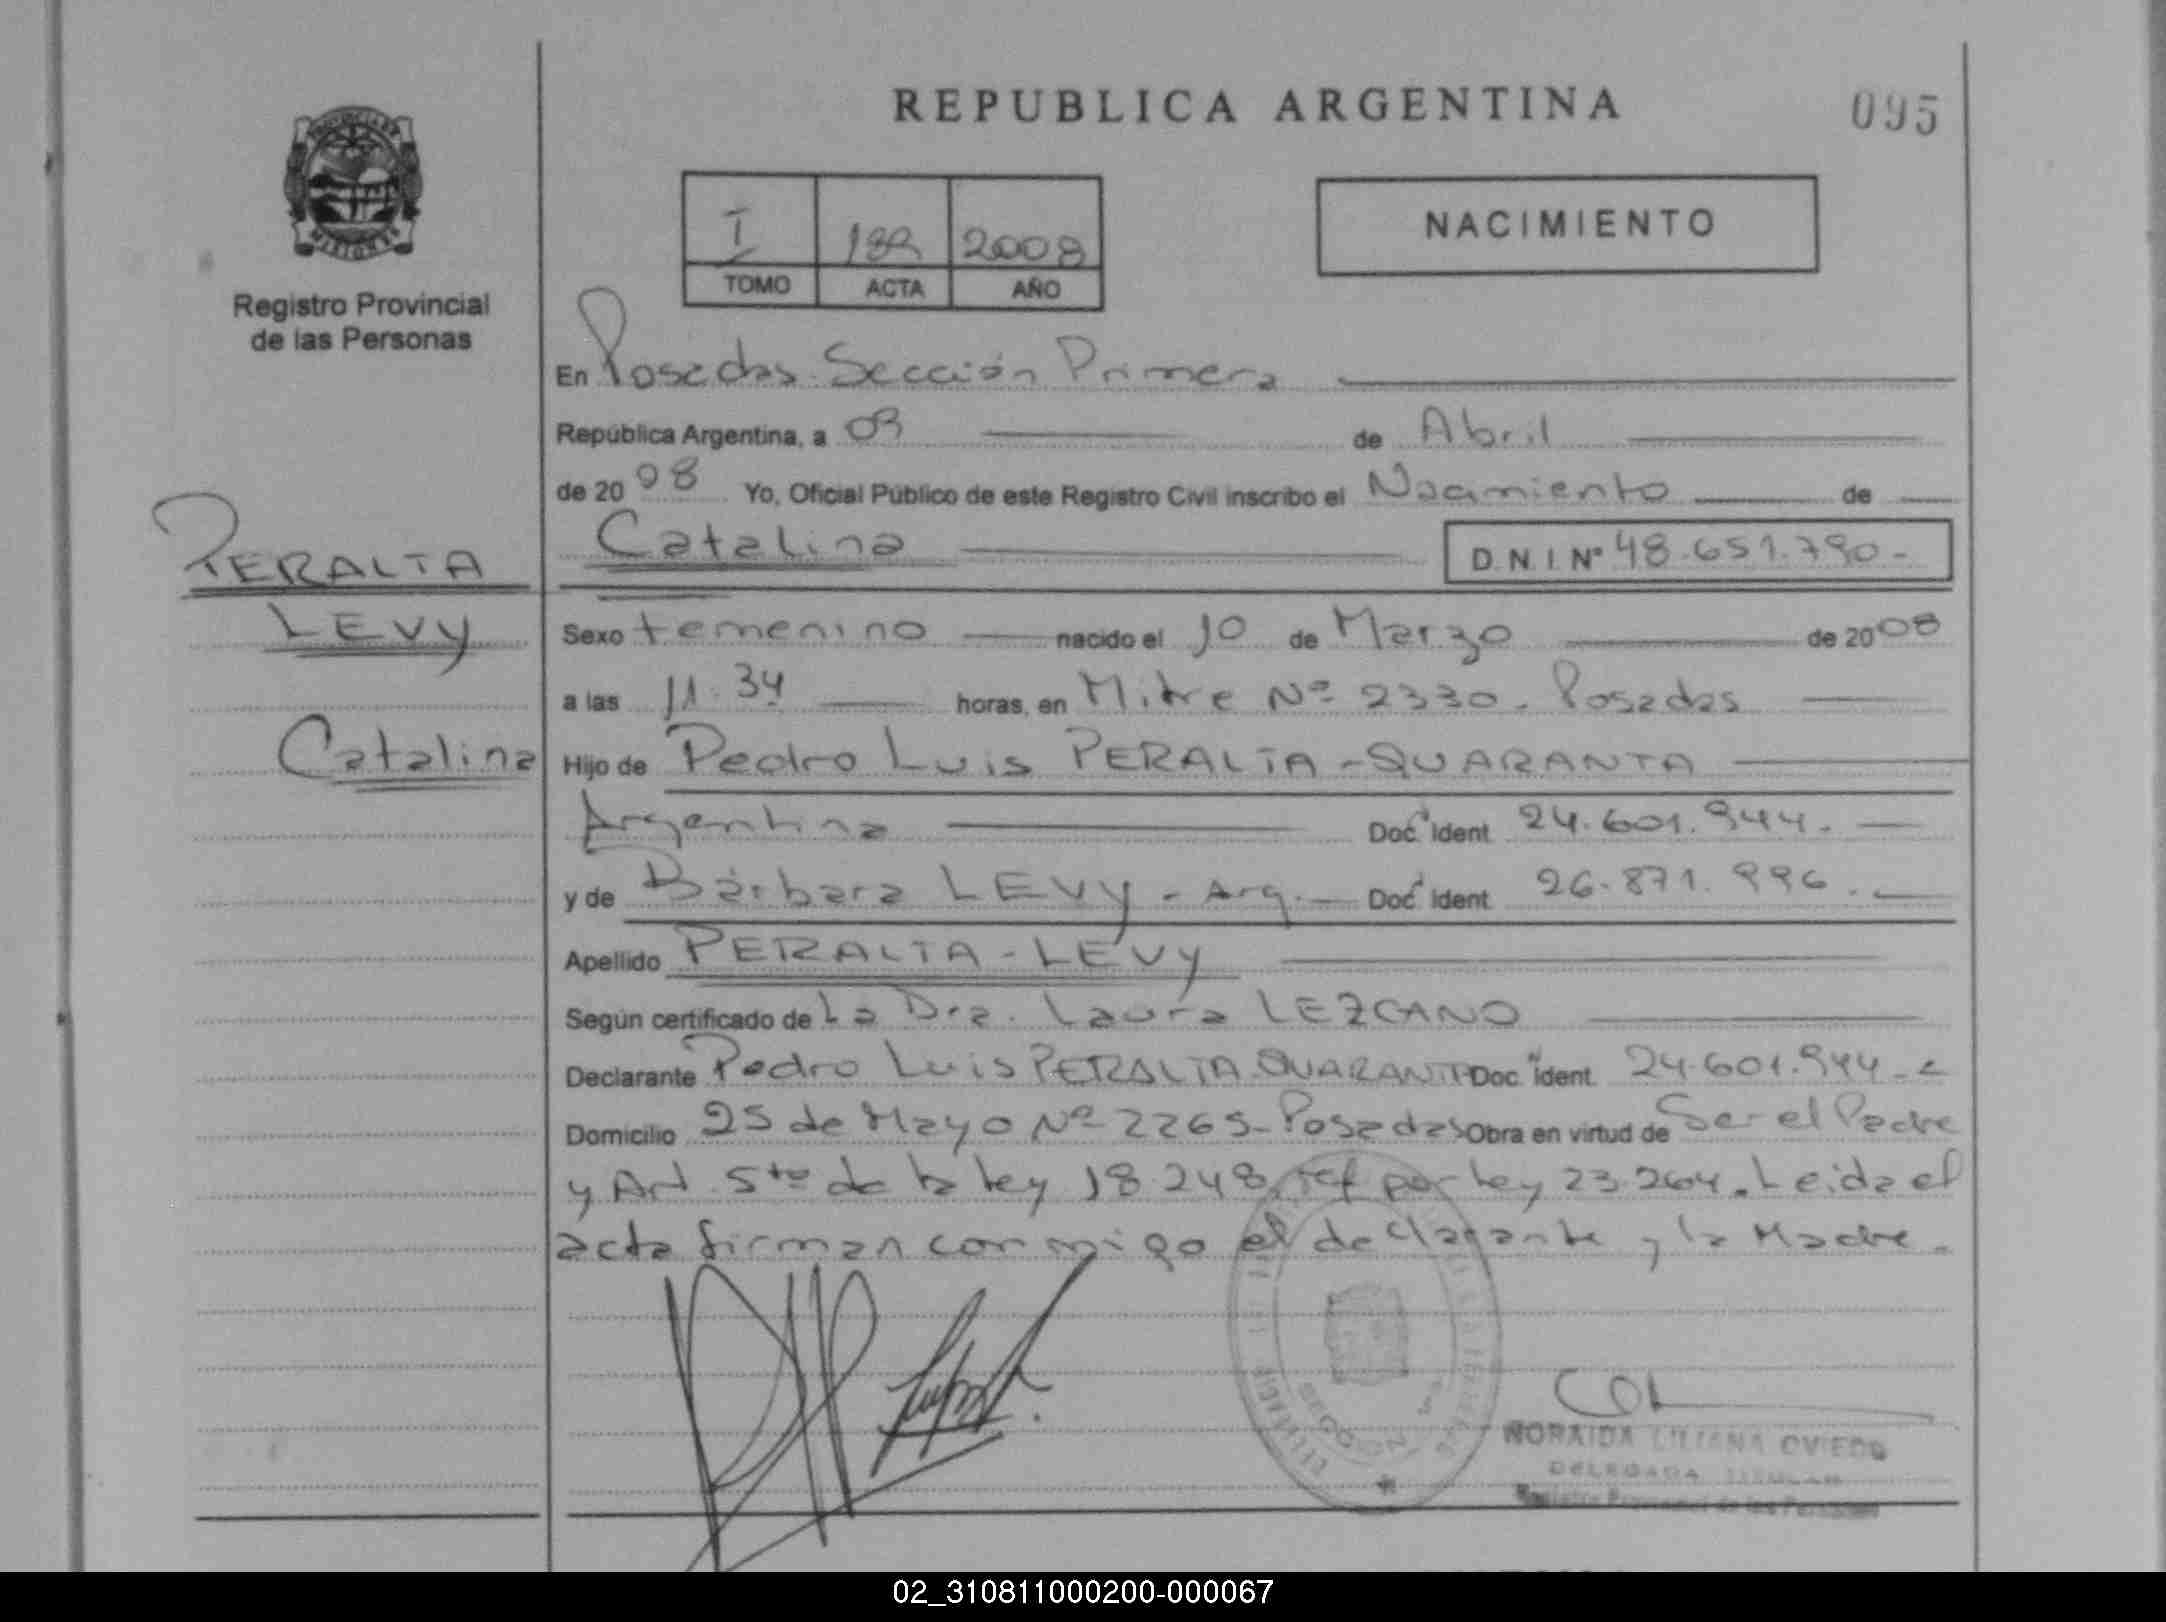 REPUBLICA ARGENTINA
095
PROVINCIA DE
MISIONES
Registro Provincial
de las Personas
I 2008
TOMO ACTA AÑO
NACIMIENTO
En Posadas Sección Primera
República Argentina, a 03 de Abril
de 2008 Yo, Oficial Público de este Registro Civil inscribo el Nacimiento de
Catalina D.N.I. Nº 48.651.790-
PERALTA
LEVY
Catalina
Sexo femenino nacido el 10 de Marzo de 2008
a las 11.34 horas, en Mitre Nº 2330. Posadas
Hijo de Pedro Luis PERALTA-QUARANTA
Argentina Doc. Ident. 24.601.944.
y de Bárbara LEVY - Arg. Doc. Ident. 26.871.996.
Apellido PERALTA-LEVY
Según certificado de La Dra. Laura LEZCANO
Declarante Pedro Luis PERALTA QUARANTA Doc. Ident. 24.601.944.-
Domicilio 25 de Mayo Nº 2265-Posadas Obra en virtud de Ser el Padre
y Art. 5to de la ley 18.248, ref por ley 23.264. Leida el
acta firman conmigo el declarante y la Madre.
SECCION 1
NORAIDA LILIANA OVIEDO
DELEGADA TITULAR
Registro Provincial de las Personas
02_310811000200-000067